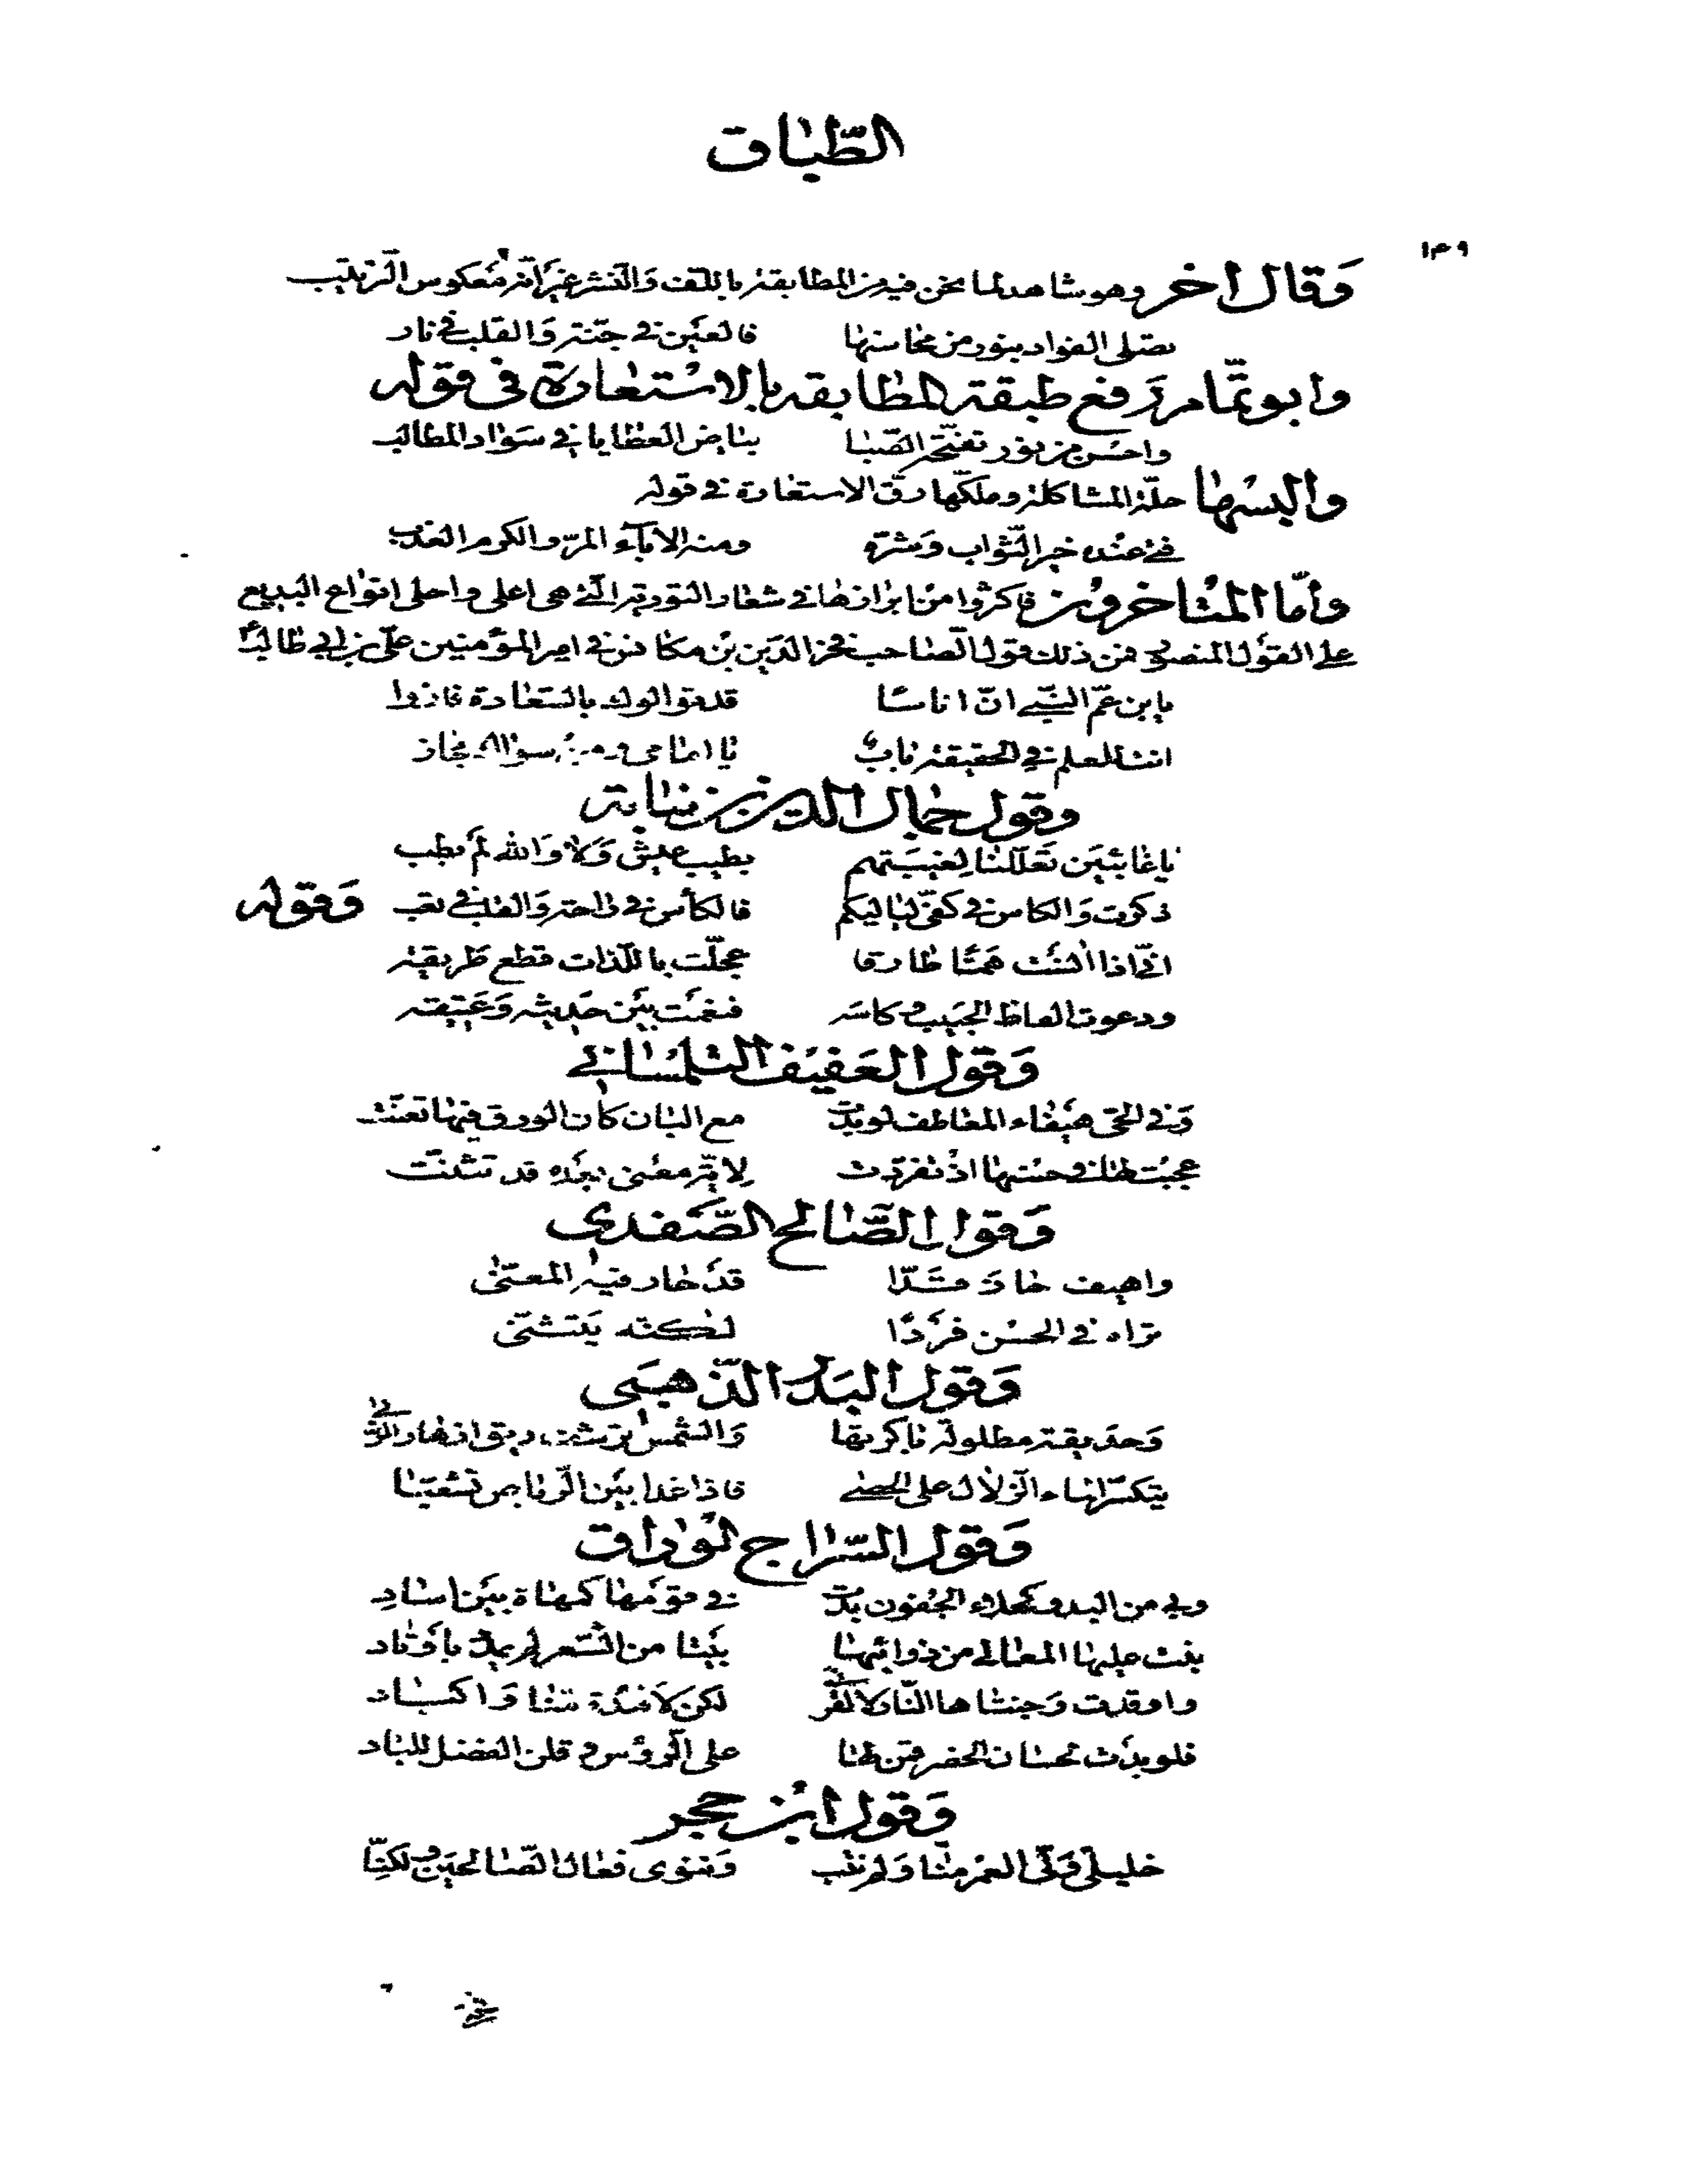 الطباق
١٣٩
وَقال اخر وهو شاهد لما نحن فيه من المطابقة باللف وَالنشر غير انه معكوس الترتيب
يصلى الفواد بنور من محاسنها فالعين في جنة وَالقلب في نار
وابو تمّام رَفع طبقة المطابقه بالاستعارة في قوله
واحسن من نور تفتّحه الصّبا بياض العطايا في سَواد المطالب
والبسها حلّة المشاكلة وملكها رقّ الاستعارة في قوله
عنده خير الثّواب وَشرّه ومنه الاباء المرّ والكرم العذب
وأمّا المتاخرون فاكثروا من ابرازها في شعار التورية الّتي هي اعلى واحلى انواع البَديع
على القول المنصور فمن ذلك قول الصّاحب فخر الدّين بن مكانس في امير المؤمنين عليّ بن ابي طالب ع
يابن عمّ النبّي انّ اناسًا قد توالوك بالسّعادة فازوا
انت للعلم في الحقيقة باب يا اماما سواك مجاز
وقول جمال الدين بن نباته
ياغائبين تعَللنا لغيبَتهم بطيب عيش وَلا وَالله لم يطب
ذكرت وَالكاس في كفّي لياليكم فالكأس في راحة وَالقلب في تعب
وَقوله
انّي اذا انست همًّا طارقا عجلت باللّذات قطع طريقه
ودعوت الفاظ الحبيب وكاسه فنعمت بين حَديثه وَعَتيقه
وَقول العَفيف التلمساني
وَفي الحي هيفاء المعاطف لو بدت مع البان كان الورق فيها تغنّت
عجبت لها في حسنها اذ تفرّدت لايّة معنى بَعده قد تثنّت
وَقول الصّالح الصَّفدي
واهيف حاز قدّا قد حار فيه المعنّى
تراه في الحسْن فرْدًا لكنّه يَتثنّى
وَقول البَدر الذّهبي
وَحديقة مطلولة باكرتها وَالشّمس ترشف ريق ازهار الربى
يتكسّر الماء الزّلال على الحصى فاذا غدا بين الرّياض تشعّبا
وَقول السّراج الورّاق
وبي من البدو كحلاء الجفون بدت في قومها كمهاة بين اساد
بنت عليها المعالي من ذوائبها بيتا من الشعر لم يمدد باوتاد
واوقدت وَجنتاها النّار لا لقرى لكن لافئدة منا وَاكباد
فلو بدت لحسان الحضر قمن لها على الرّؤس وقلن الفضل للباد
وَقول ابن حجر
خليليّ وَلّى العمر منّا وَلم نتب وَننوي فعال الصّالحين وَلكنّا